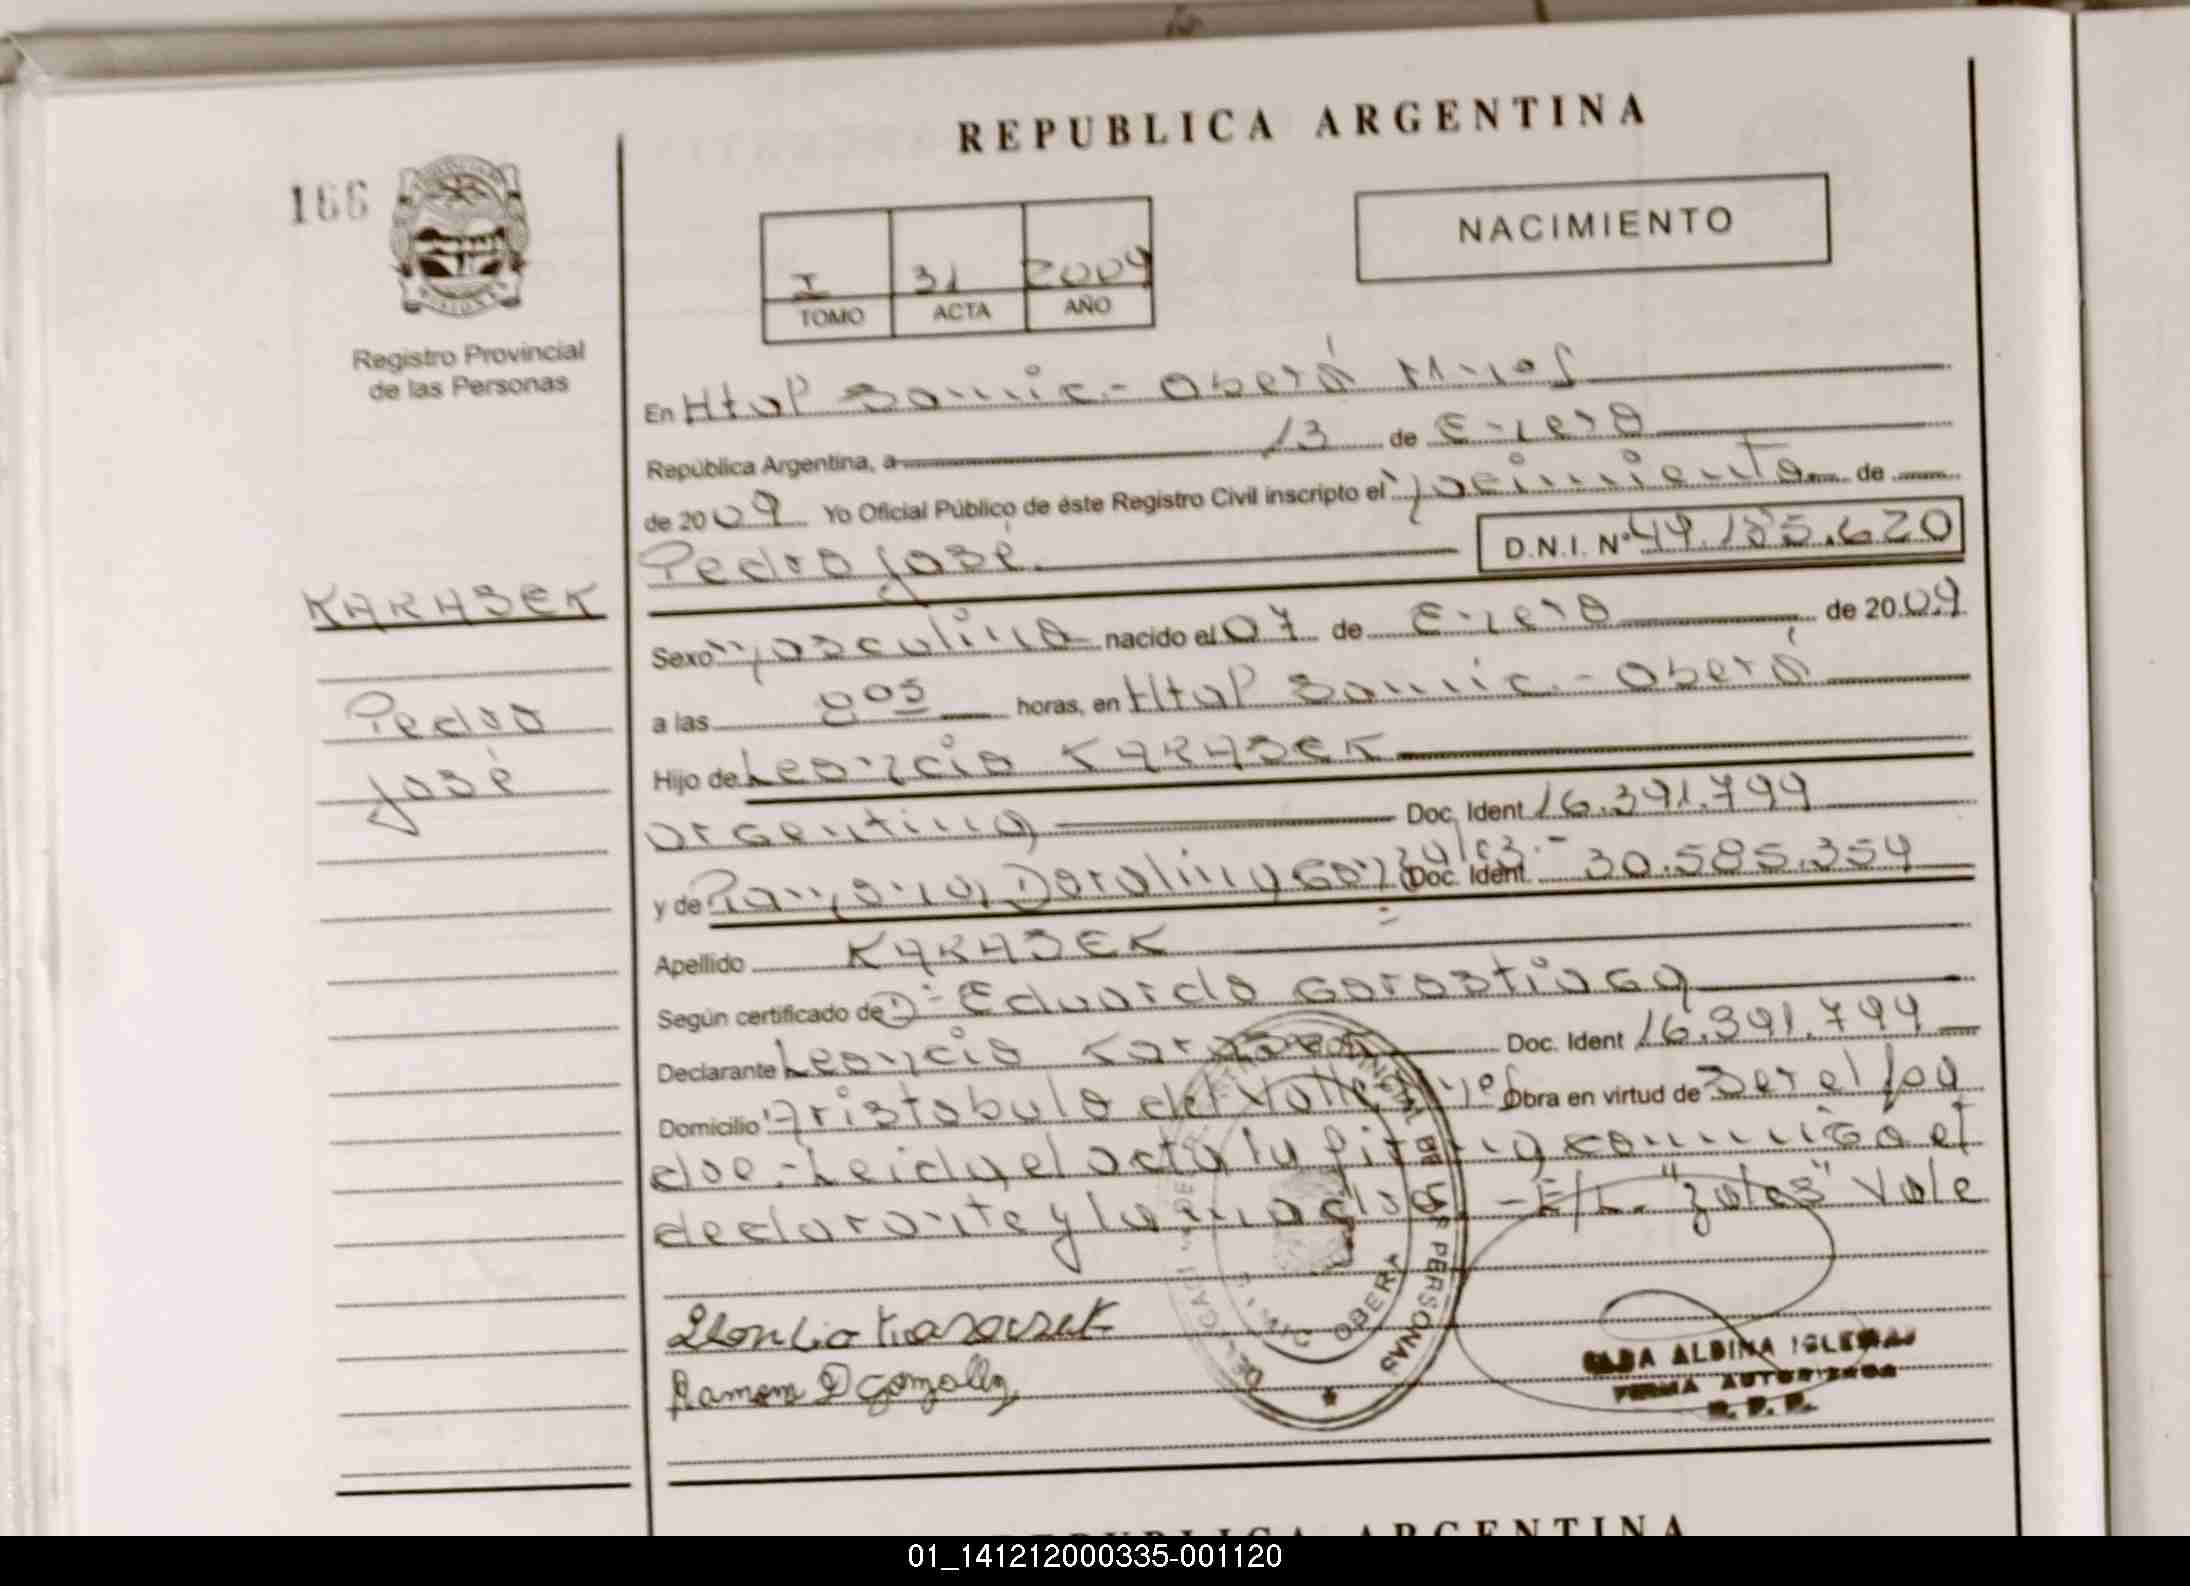 REPUBLICA ARGENTINA
166
NACIMIENTO
I 31 2009
TOMO ACTA AÑO
Registro Provincial
de las Personas
En Htal Samic.- Oberá Mnes
República Argentina, a 13 de Enero
de 2009 Yo Oficial Público de éste Registro Civil inscripto el nacimiento de
Pedro José. D.N.I. Nº 49.185.620
KARASEK
Pedro
José
Sexo masculino nacido el 07 de Enero de 2009
a las 8 05 horas, en Htal Samic.- Oberá
Hijo de Leoncio KARASEK
argentino Doc. Ident 16.391.799
y de Ramona Doralina Gonzalez.- Doc. Ident. 30.585.354
Apellido KARASEK
Según certificado de Dr Eduardo Gorostiaga
Declarante Leoncio Karasek Doc. Ident 16.391.799
Domicilio Aristobulo del Valle Mnes Obra en virtud de Ser el pa
dre.- Leida el acta la firma conmigo el
declarante y la madre. - E/L. "zalez" Vale
Leoncio Karasek
Ramona D Gonzalez
PERSONAS
OBERA
ALBINA IGLESIAS
FIRMA AUTORIZADA
R. P. P.
REPUBLICA ARGENTINA
01_141212000335-001120